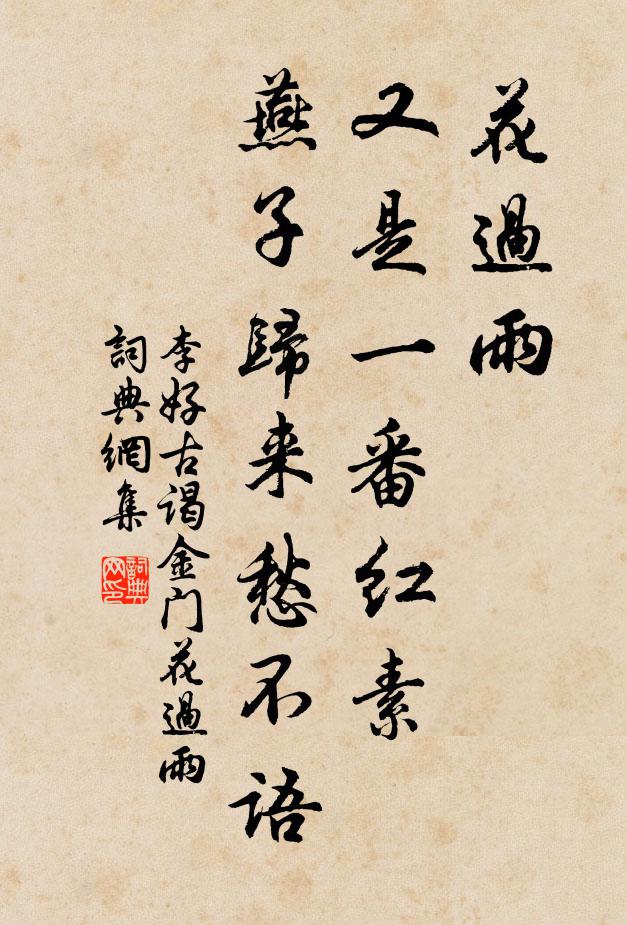 花過雨
又是一番红素
燕子歸来愁不語
李好古谒金门花過雨
詞典網集
詞典网印